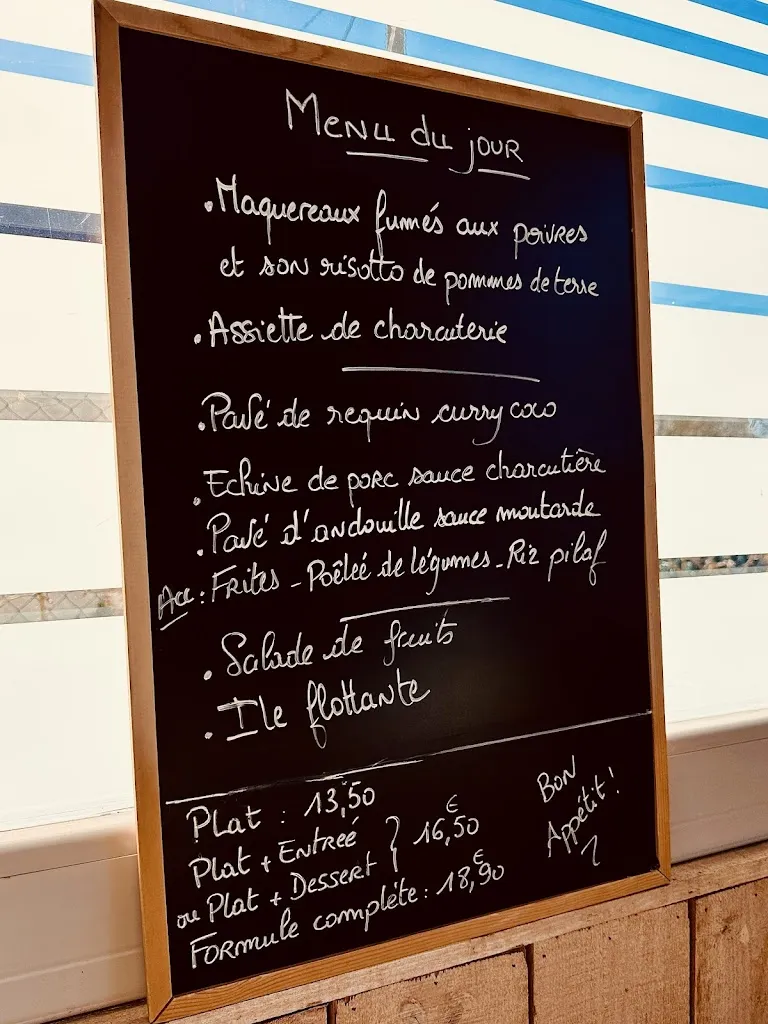 Menu du jour
. Maquereaux fumés aux poivres
et son risotto de pommes de terre
. Assiette de charcuterie
. Pavé de requin curry coco
. Echine de porc sauce charcutière
. Pavé d'andouille sauce moutarde
Acc : Frites - Poêleé de légumes - Riz pilaf
. Salade de fruits
. Ile flottante
Plat : 13,50
Plat + Entreé
ou Plat + Dessert } 16,50€
Formule complète : 18,90€
Bon
Appétit !